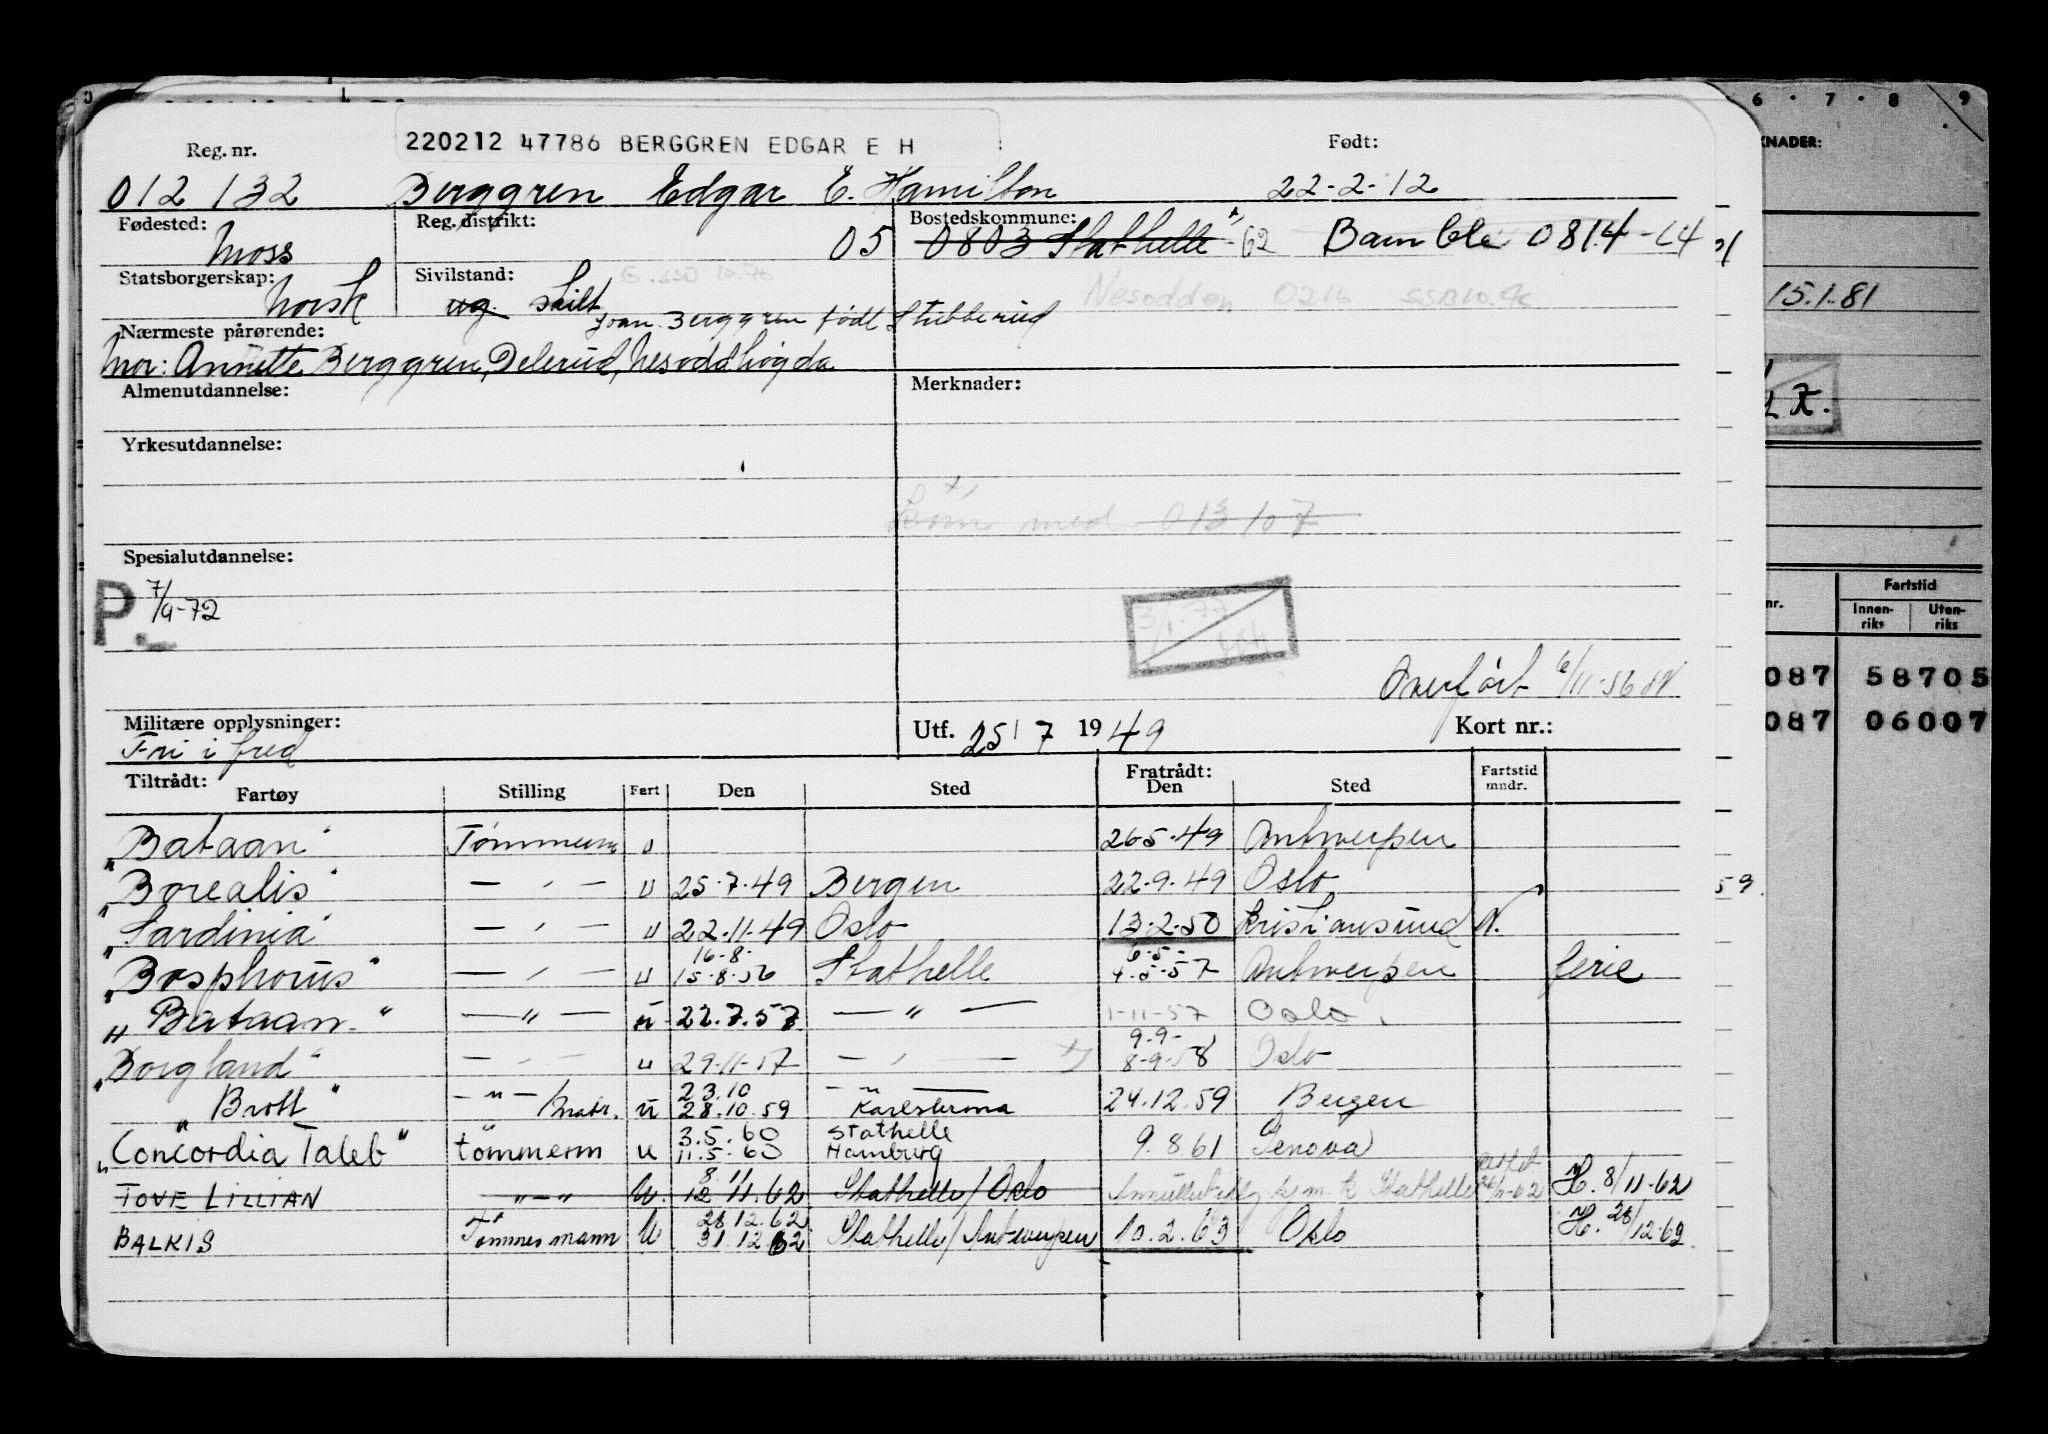 6 · 7 · 8 9
KNADER:
220212 47786 BERGGREN EDGAR E H
Reg. nr. Født:
012 132 Berggren Edgar E. Hamilton 22-2-12
Fødested: Reg. distrikt: Bostedskommune:
Moss 05 0803 Stathelle -62 Bamble 0814-64
Statsborgerskap: Sivilstand:
norsk ug. skilt Nesodden 0216
15.1.81
Joan Berggren født Stubberud
Nærmeste pårørende:
Mor: Annette Berggren, Delerud, Nesoddhøgda
Almenutdannelse: Merknader:
Yrkesutdannelse:
Som med 013107
Spesialutdannelse:
P. 7/9-72
3/1-77
Overført 6/11-56
Militære opplysninger: Utf. 25/7 1949 Kort nr.:
Fri i fred
Tiltrådt: Fratrådt:
Fartøy Stilling Fart Den Sted Den Sted Fartstid mndr.
"Bataan" Tømmerm u 26-5-49 Antwerpen
"Borealis" — " — u 25-7-49 Bergen 22-9-49 Oslo
"Sardinia" — " — u 22-11-49 Oslo 13-2-50 Kristiansund N.
16-8- 6-5-
"Bosphorus" — " — u 15-8-56 Stathelle 4-5-57 Antwerpen ferie
"Bataan" — " — u 22.7.57 — " — 1-11-57 Oslo
9-9-
"Borgland" — " — u 29-11-57 — " — x) 8-9-58 Oslo
23.10 — " —
"Brott" — " — Matr. u 28.10.59 Karlskrona 24.12.59 Bergen
3.5.60 Stathelle
"Concordia Taleb" tømmerm u 11.5.60 Hamburg 9.8.61 Genova
8.11
TOVE LILLIAN — " — U. 12 11.62 Stathelle/Oslo H. 8/11-62
28.12.62
BALKIS Tømmermann U 31.12 62 Stathelle/Antwerpen 10.2.63 Oslo H. 28/12-62
Fartstid
nr. Innen-riks Uten-riks
087 58705
087 06007